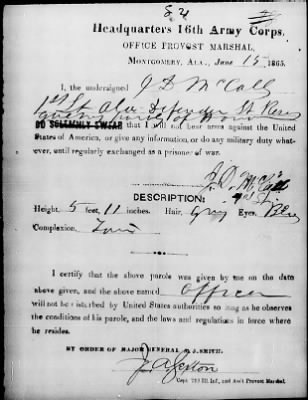 Headquarters 16th Army Corps,
OFFICE PROVOST MARSHAL,
MONTGOMERY, ALA., June 15 1865.
I, the undersigned J D McCall
1st Lt Ala Defender St Rese
DO SOLEMNLY SWEAR that I will not bear arms against the United
States of America, or give any information, or do any military duty whatever,
until regularly exchanged as a prisoner of war.
J. D. McCall
DESCRIPTION:
Height, 5 feet, 11 inches. Hair, Grey Eyes, Blue
Complexion,
I certify that the above parole was given by me on the date
above given, and the above named Officer
will not be disturbed by United States authorities so long as he observes
the conditions of his parole, and the laws and regulations in force where
he resides.
BY ORDER OF MAJOR GENERAL A. J. SMITH.
J. A. Sexton
Capt. 72d Ill. Inf., and Ass't Provost Marshal.